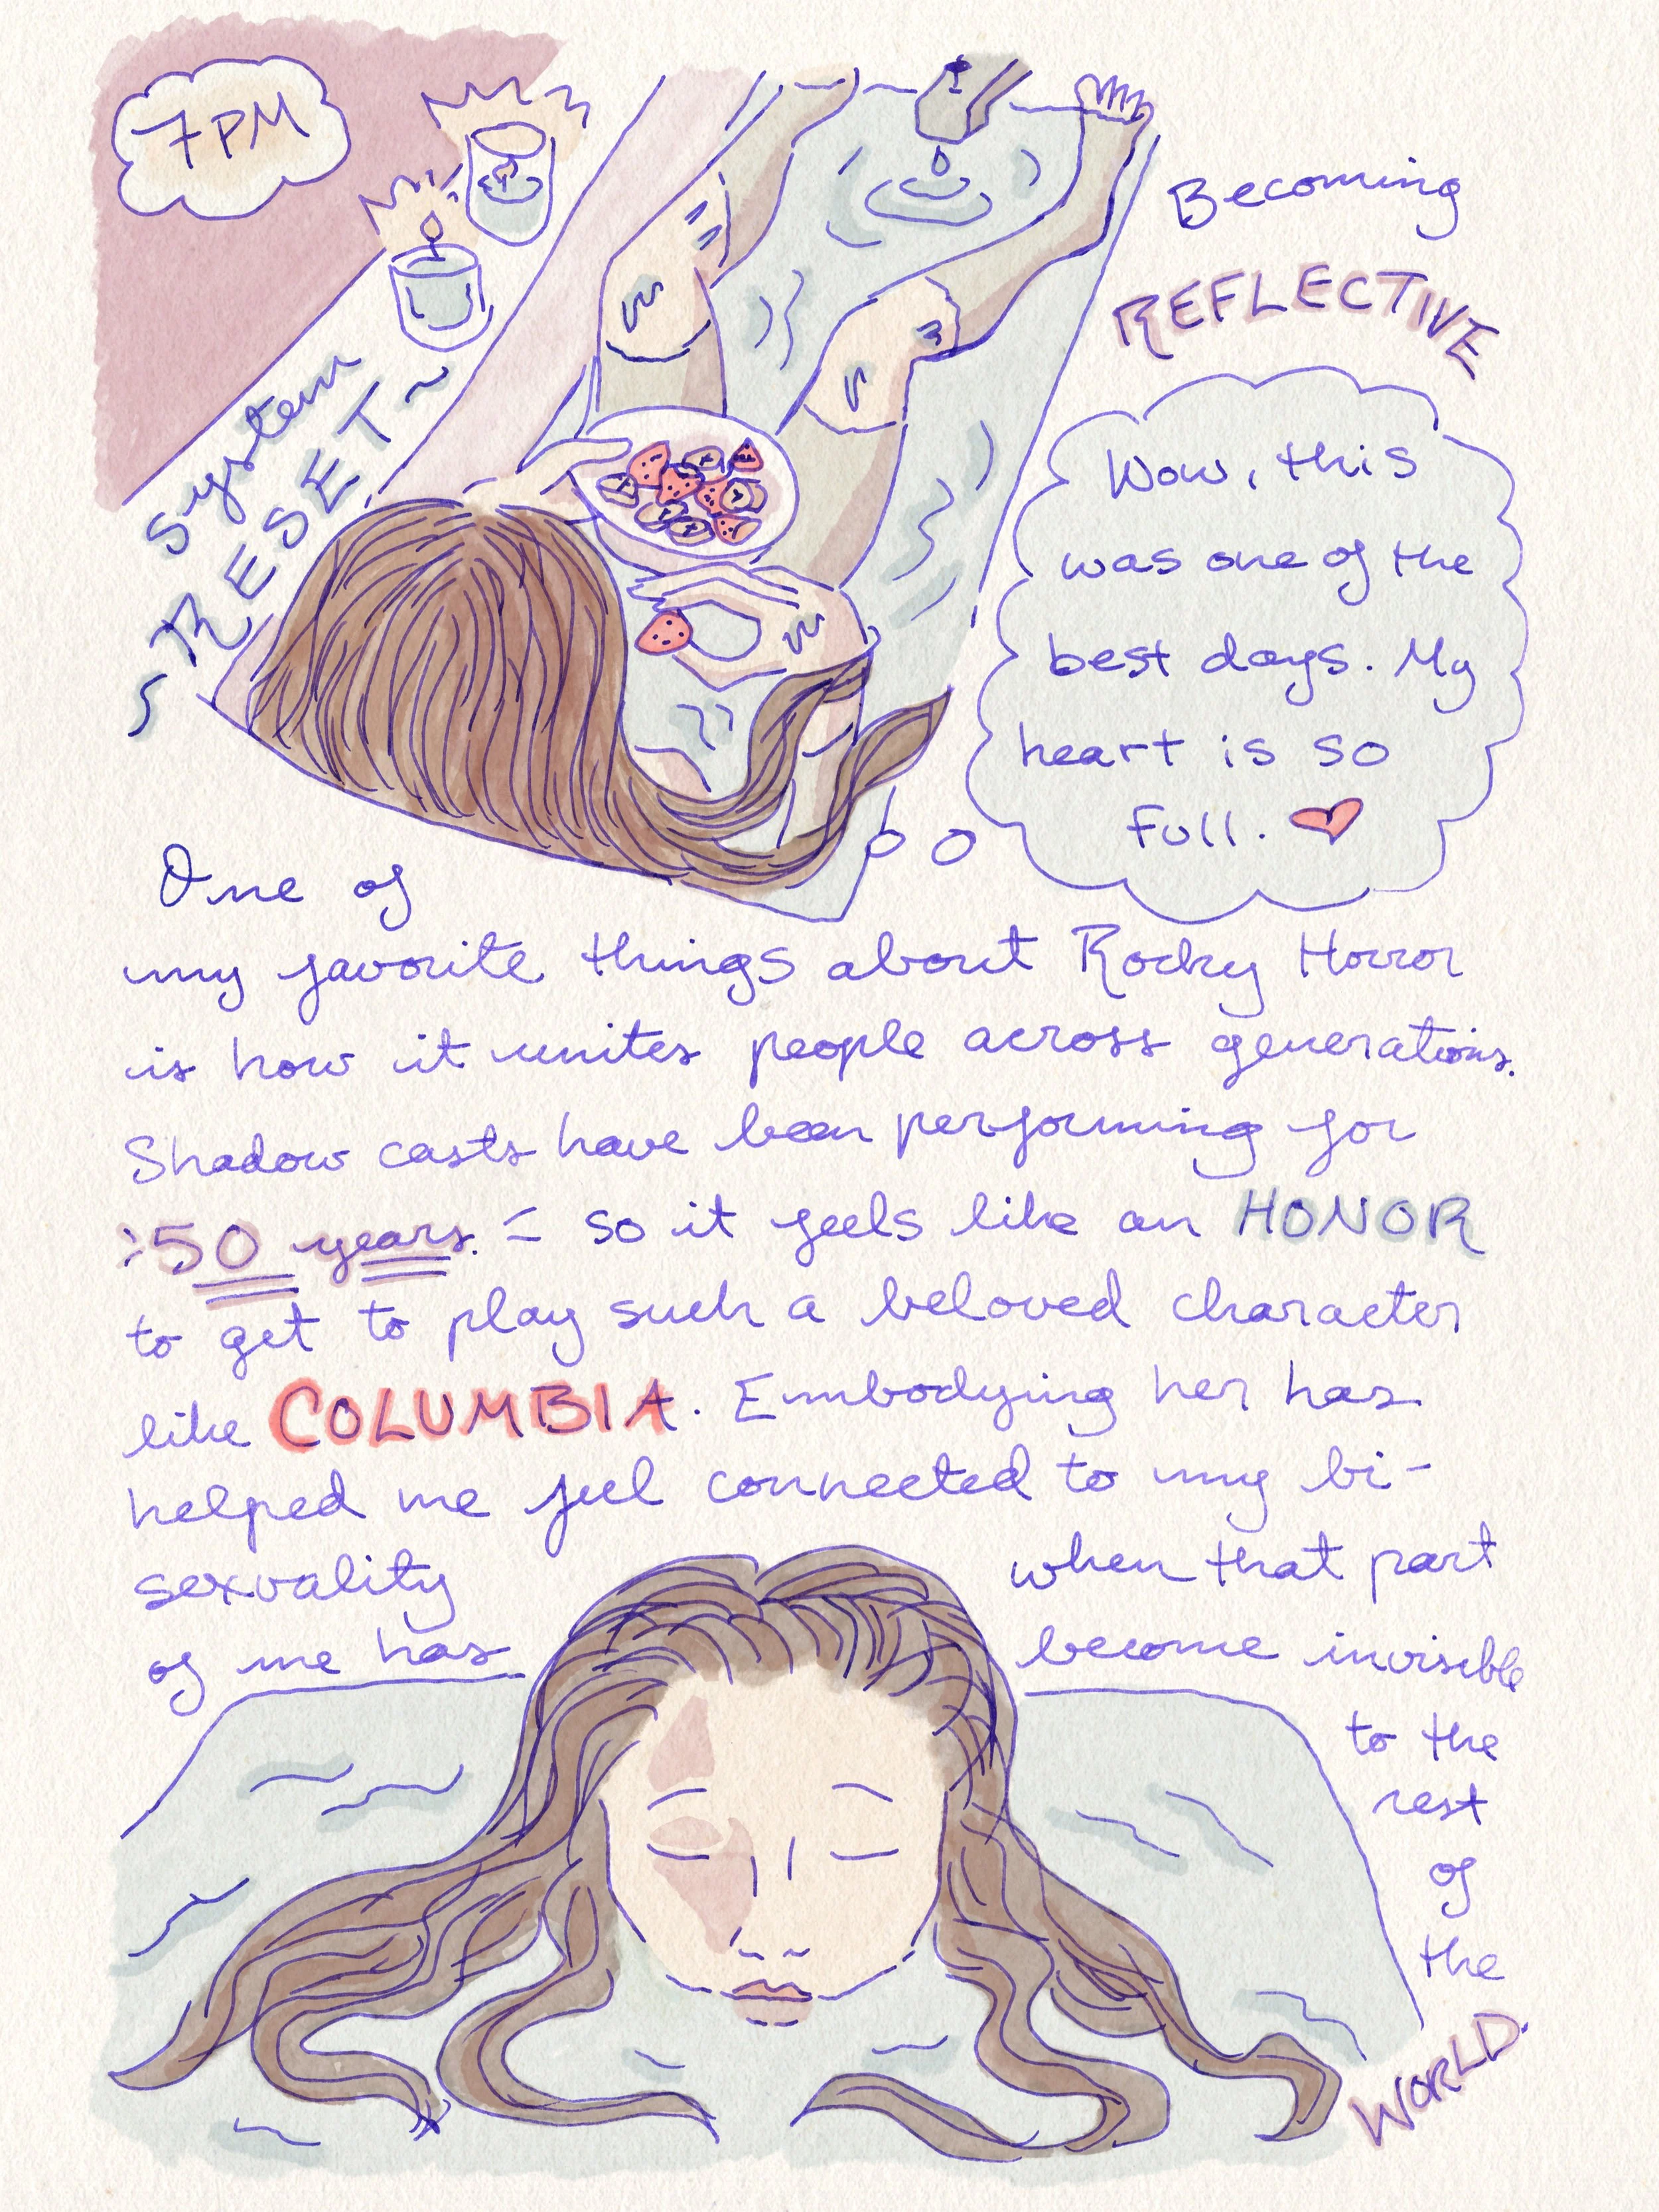 7PM
System
~RESET~
Becoming
REFLECTIVE
Wow, this
was one of the
best days. My
heart is so
full.
One of
my favorite things about Rocky Horror
is how it unites people across generations.
Shadow casts have been performing for
50 years. - so it feels like an HONOR
to get to play such a beloved character
like COLUMBIA. Embodying her has
helped me feel connected to my bi-
sexuality when that part
of me has become invisible
to the
rest
of
the
WORLD.